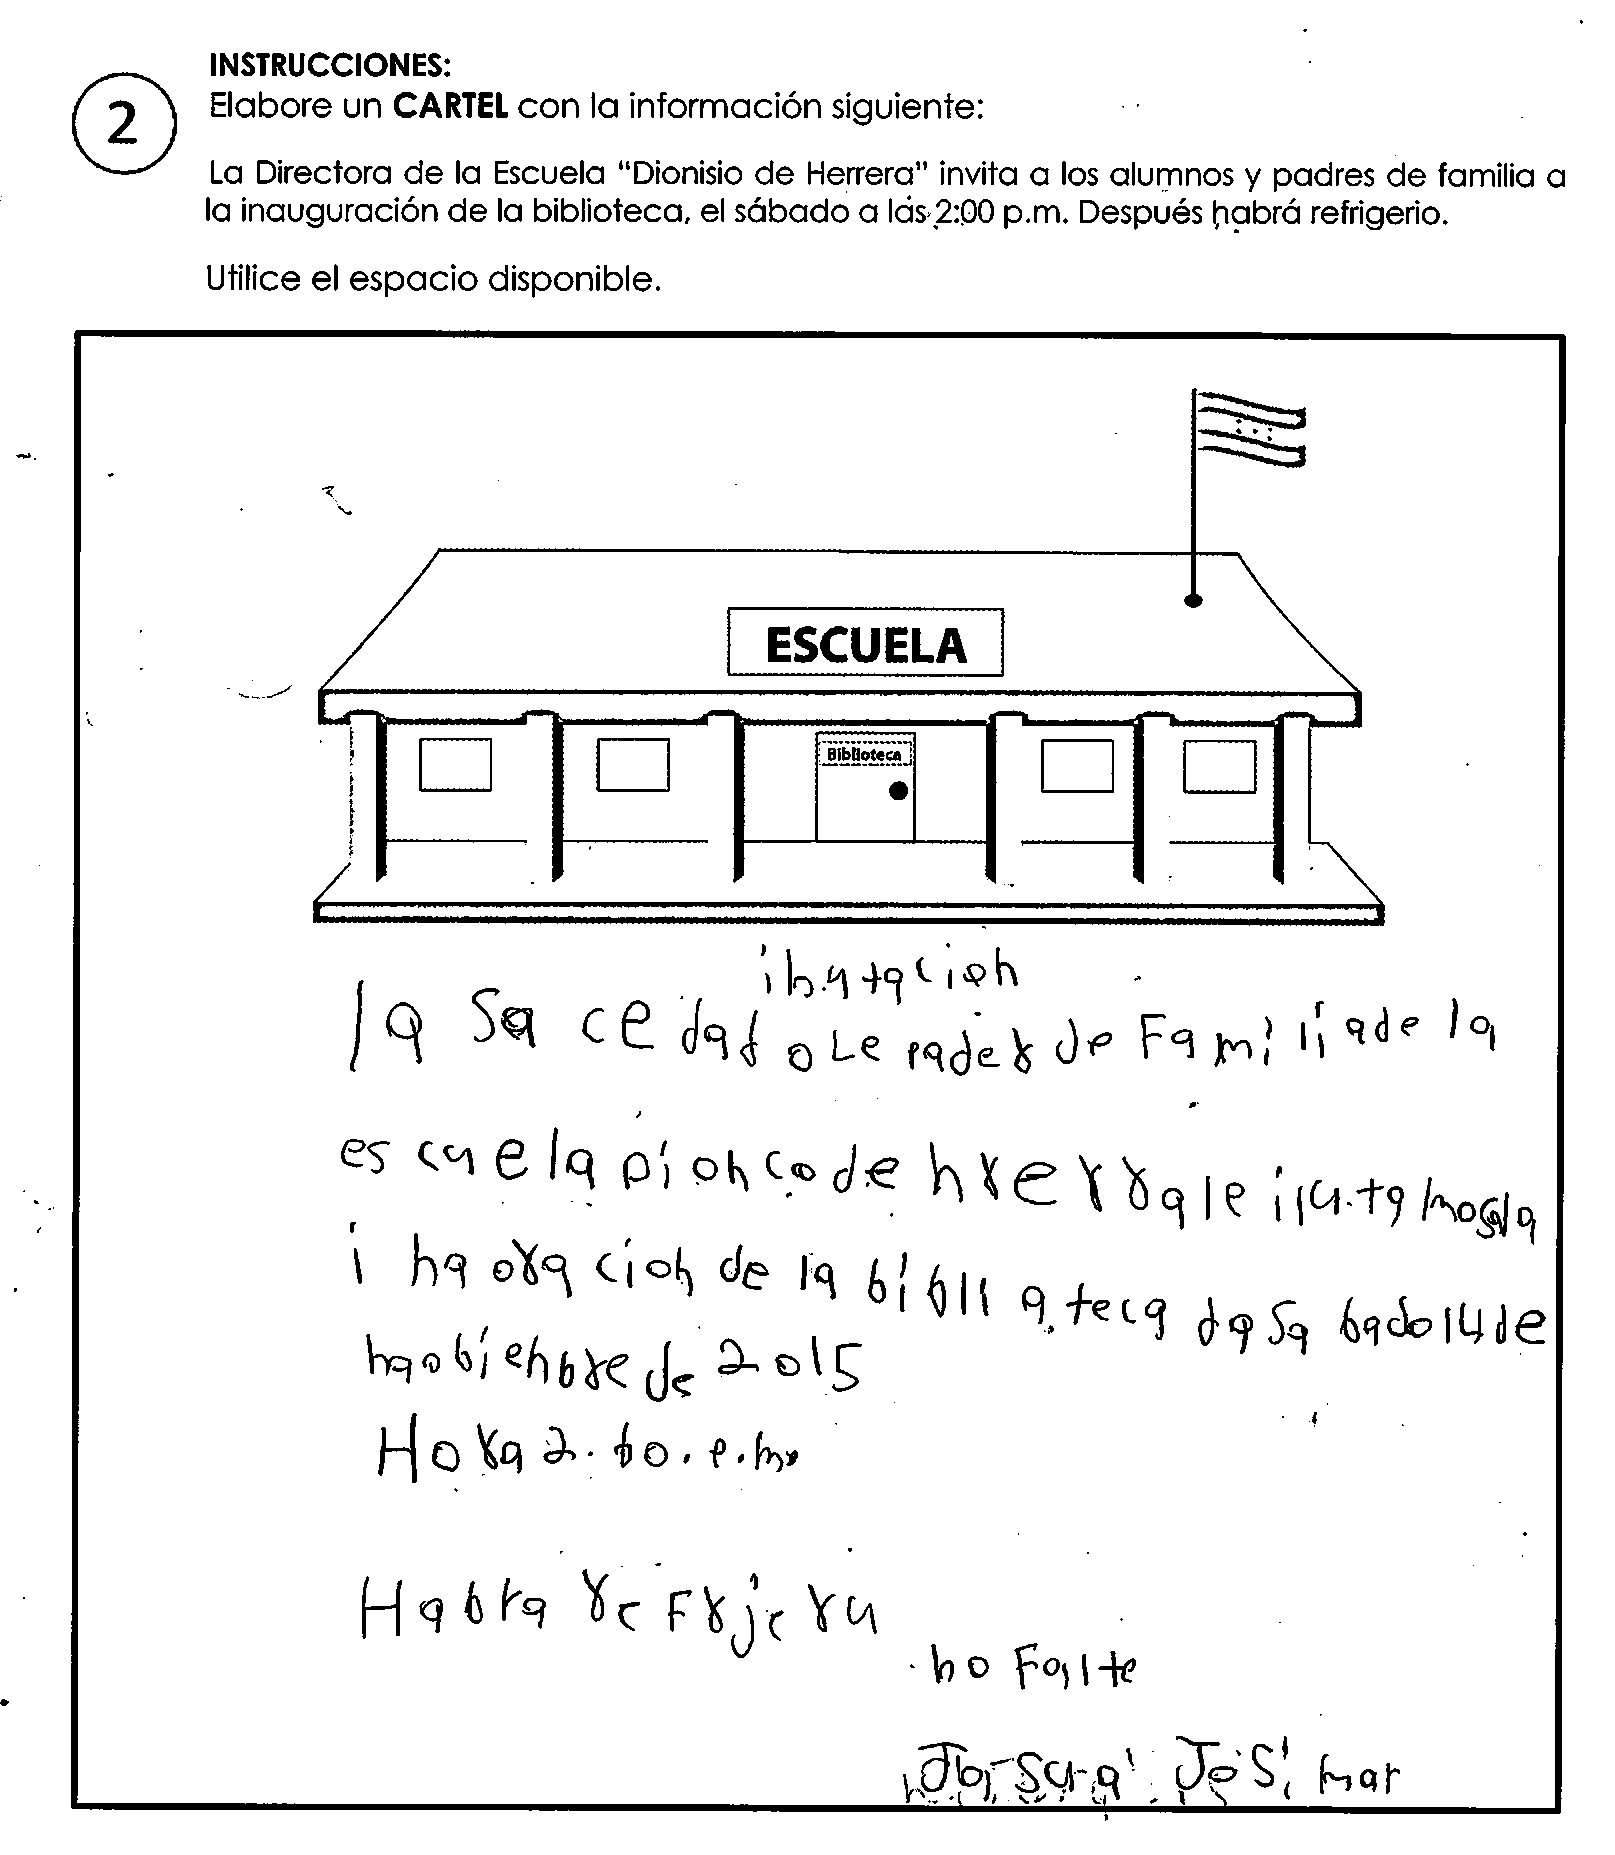 INSTRUCCIONES:
2
Elabore un CARTEL con la información siguiente:
La Directora de la Escuela "Dionisio de Herrera" invita a los alumnos y padres de familia a
la inauguración de la biblioteca, el sábado a las 2:00 p.m. Después habrá refrigerio.
Utilice el espacio disponible.
ESCUELA
Biblioteca
ihutacioh
la Sa ce dad o Le pader de Fami lia de la
es cu e la pioh co de hrerra le
i ha ora cioh de la bibli a teca da Sa bado 14 de
haobiehbre de 2015
Hora 2.
Habra re Frjeru
ho Falte